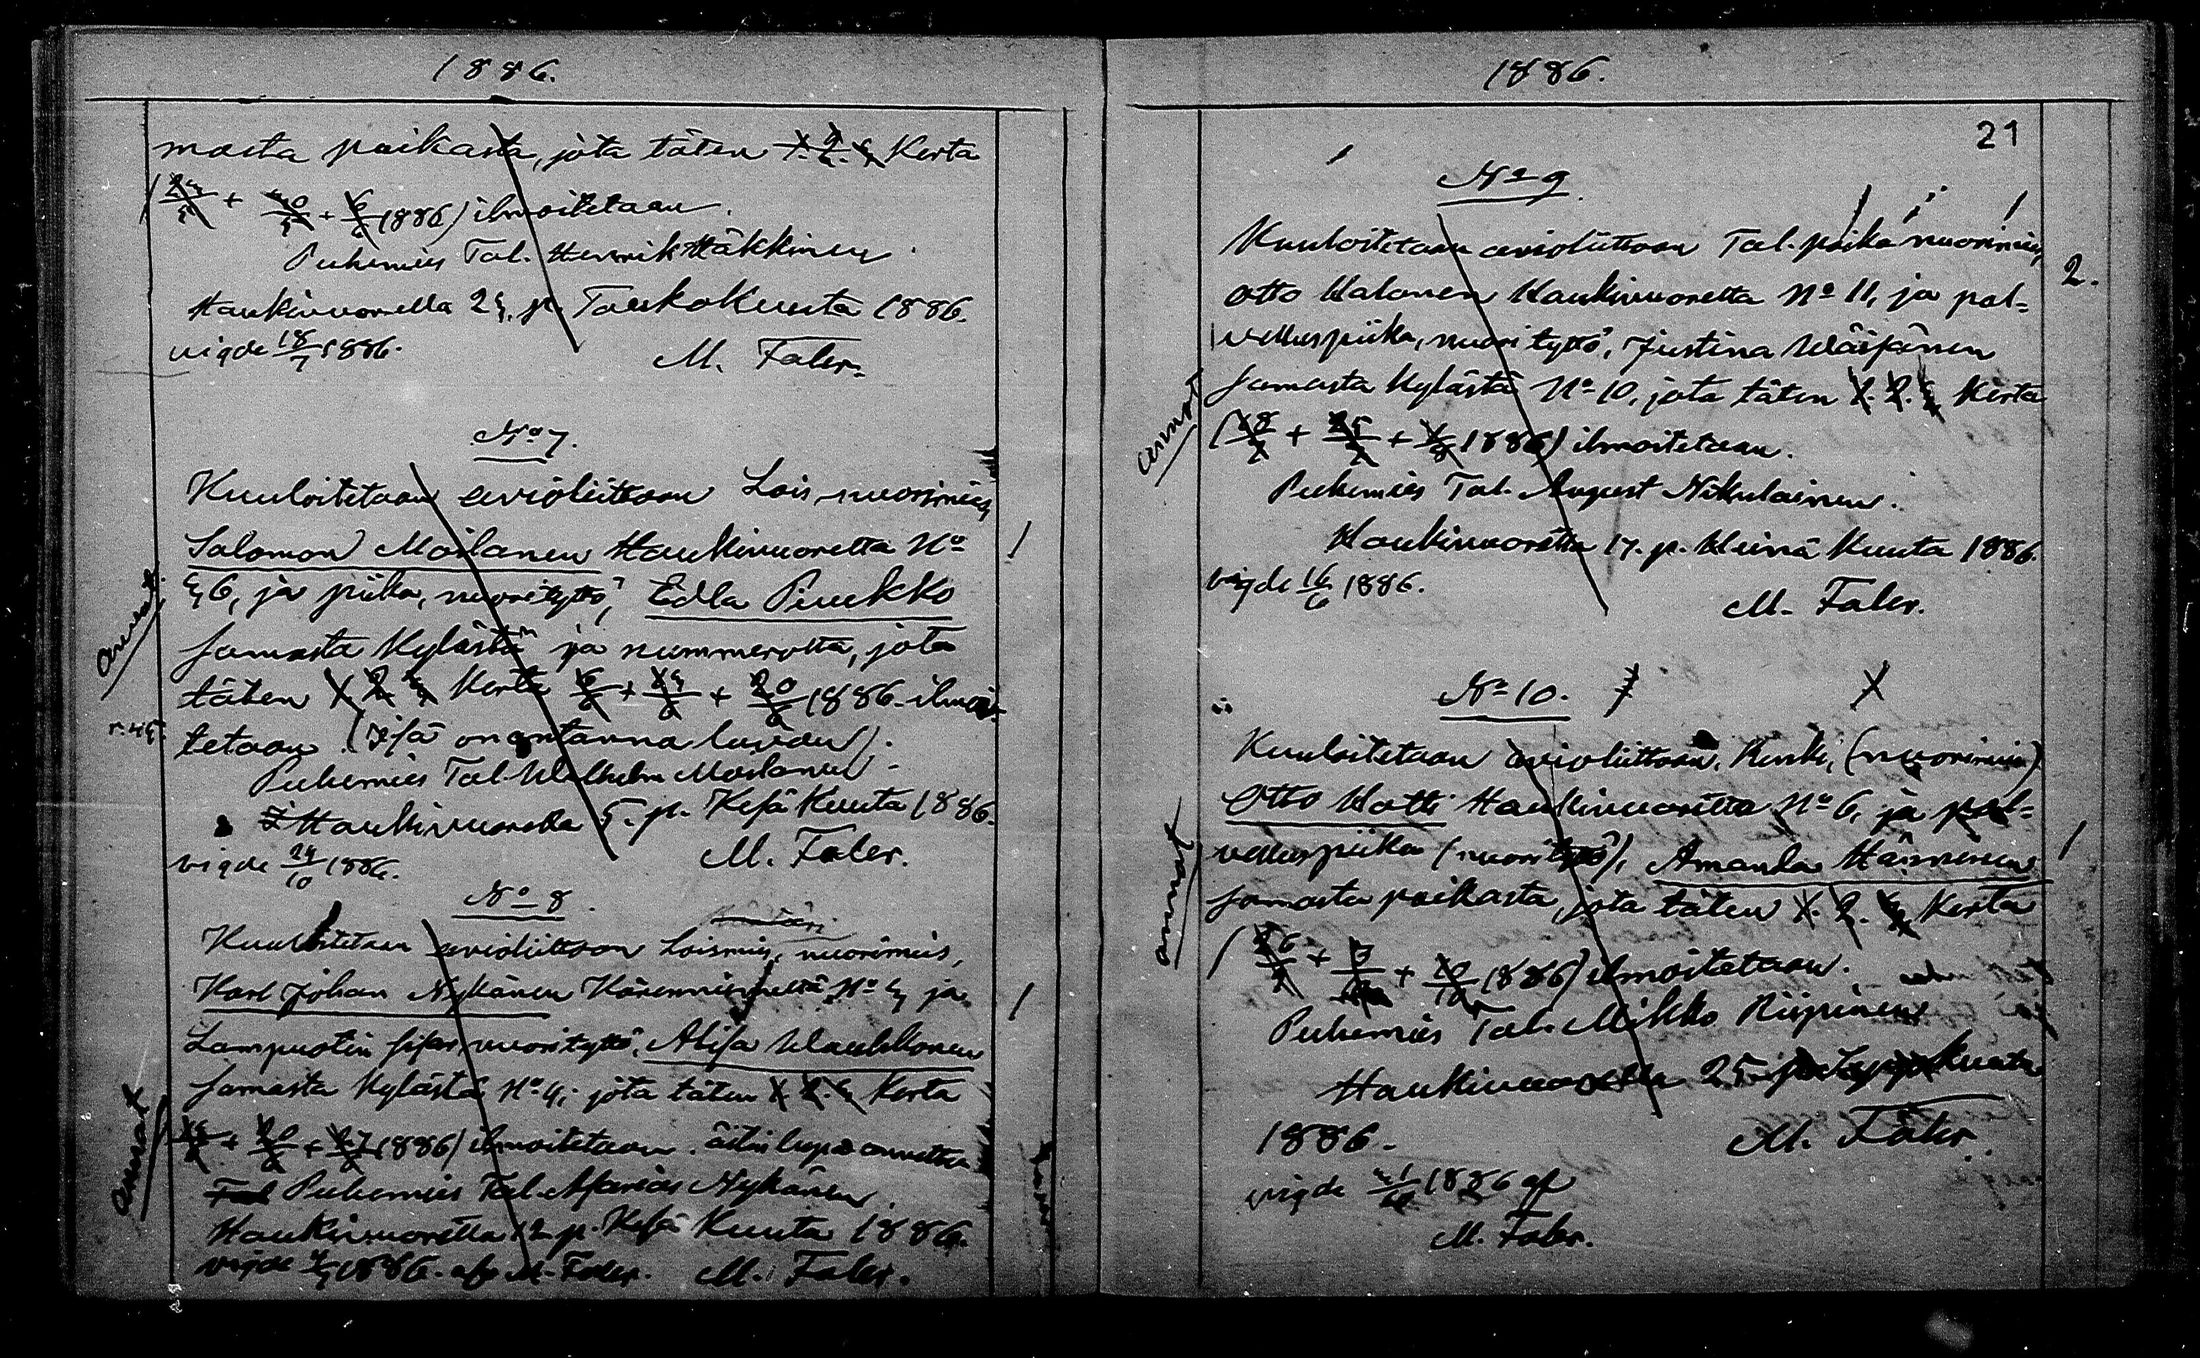 1886.
masta paikasta, jota täten 1. 2. 3 Kerta
(23/5 + 30/5 + 6/6 1886) ilmoitetaan.
Puhemies Tal. Henrik Häkkinen
Haukivuorella 23. p. ToukoKuuta 1886.
vigde 18/7 1886.
M. Faler.
No 7.
Kuuloitetaan avioliittoon Lois nuorimies
Salomon Moilanen Haukivuorelta No
36, ja piika, nuorityttö, Edla Puukko
samasta Kylästä ja nummerolta, jota
täten 1 2 3 Kerta 6/6 + 13/6 + 20/6 1886. ilmoi-
tetaan. (Isä on antanna luvan).
Puhemies Tal. Wilhelm Moilanen.
Haukivuorella 5. p. KesäKuuta 1886.
vigde 24/10 1886.
M. Faler.
annat.
No 8.
Kuuloitetaan avioliittoon Loismies, nuorimies,
Karl Johan Nykänen No 3 ja
Lampuotin sisar, nuorityttö, Alisa Waukkonen
samasta Kylästä No 4; jota täten 1 2. 3 Kerta
1886) ilmoitetaan. äitin lupa annettu
Puhemies Tal. Nykänen.
Haukivuorella 12 p. Kesä Kuuta 1886.
vigde 1886. af M. Faler. M. Faler.
annat
1
1
1886.
21
No 9.
Kuuloitetaan avioliittoon Tal. poika nuorimies
Otto Walonen Haukivuorelta No 11, ja pal-
velluspiika, nuori tyttö, Justina Wäisänen
samasta Kylästä No 10, jota täten 1. 2. 3 Kerta
(18/7 + 25/7 + 1/8 1886) ilmoitetaan.
Puhemies Tal. August Nikulainen.
Haukivuorella 17. p. Heinä Kuuta 1886.
vigde 16/6 1886.
M. Faler.
annat
2.
No 10.
Kuuloitetaan avioliittoon, Renki, (nuorimies)
Otto Hatti Haukivuorelta No 6, ja pal-
velluspiika (nuorityttö), Amanda Hänninen
samasta paikasta, jota täten 1. 2. 3 Kerta
(26/9 + 3/10 + 10/10 1886) ilmoitetaan.
Puhemies Tal. Mikko Riipinen
Haukivuorella 25 p. SyysKuuta
1886.
M. Faler.
vigde 31/10 1886 af
M. Faler.
annat
1